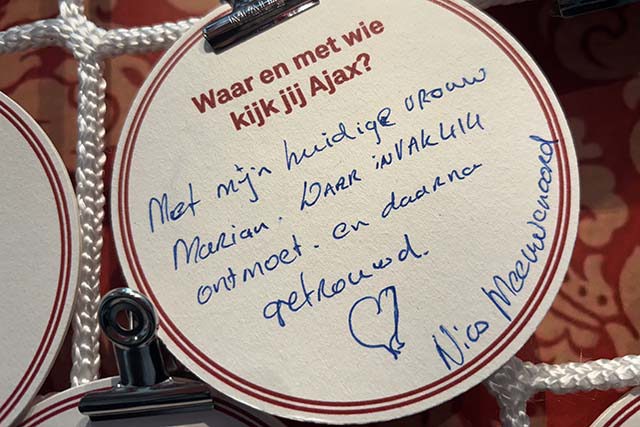 Waar en met wie
kijk jij Ajax?
Met mijn huidige vrouw
Marian. Daar in VAK 414
ontmoet. en daarna
getrouwd.
Nico Meeuwenoord